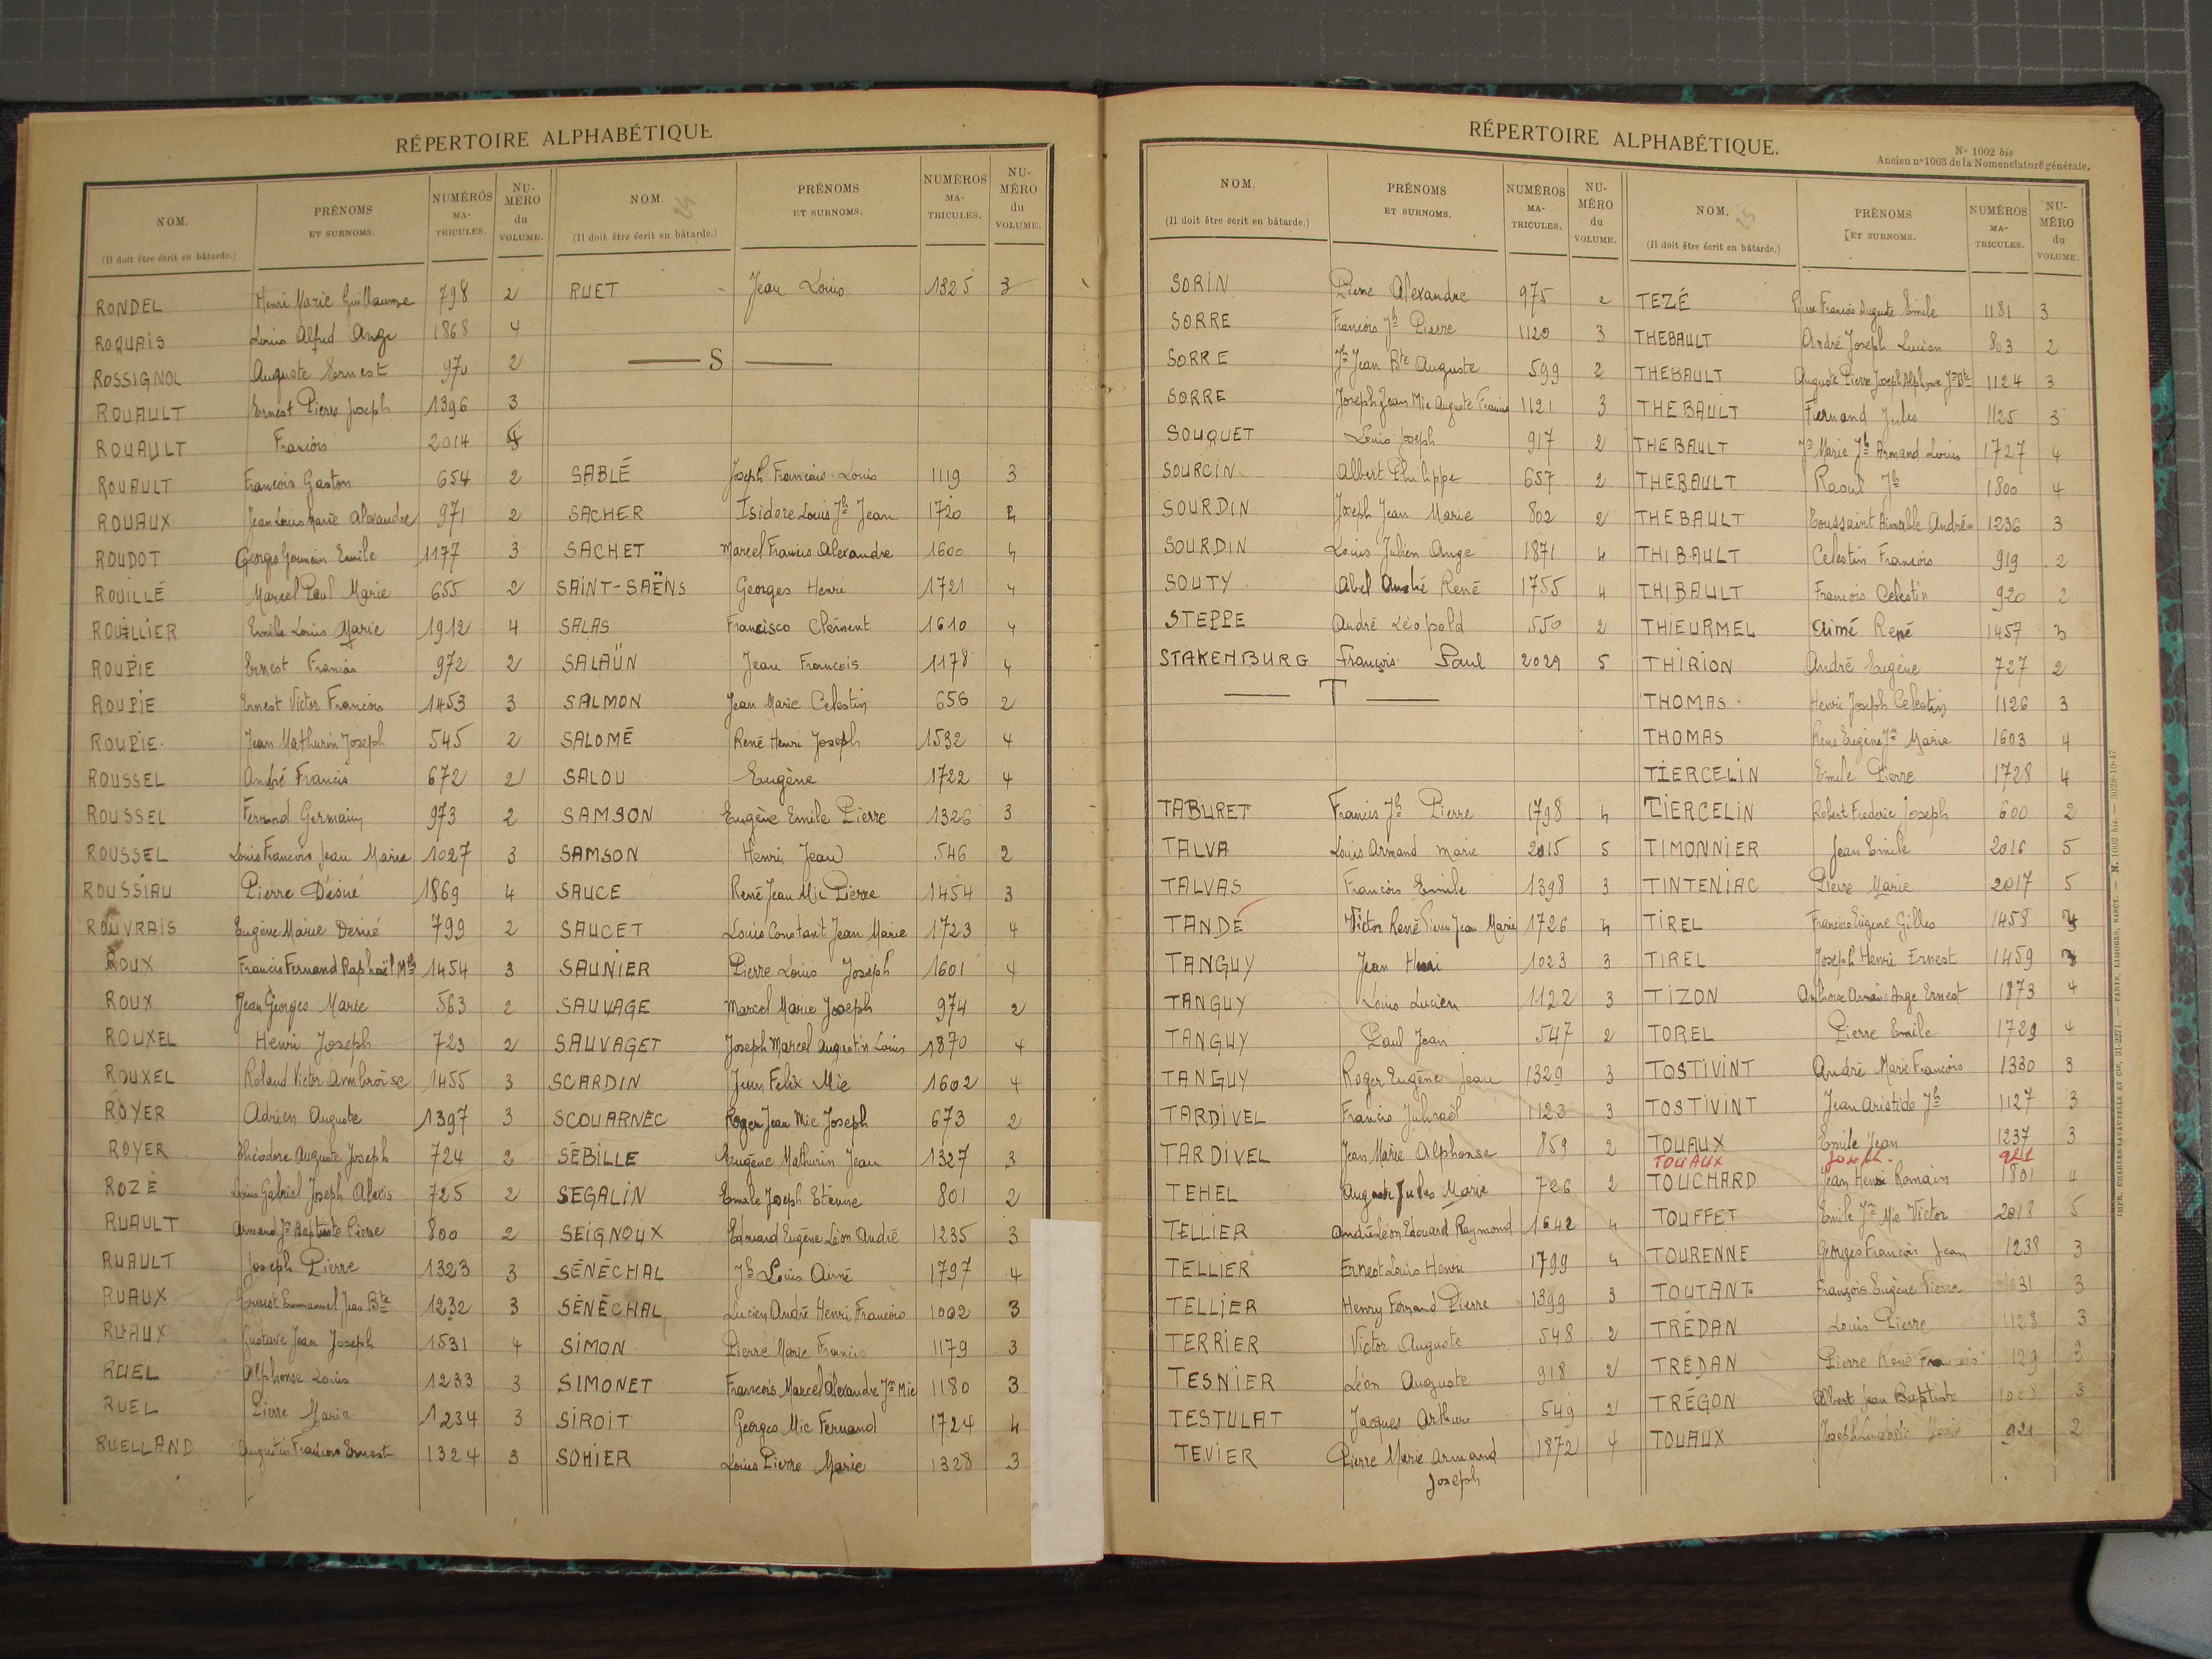 RÉPERTOIRE ALPHABÉTIQUE
NOM. (Il doit être écrit en bâtarde.) PRÉNOMS ET SURNOMS. NUMÉROS MA-TRICULES. NU-MÉRO du VOLUME.
RONDEL Henri Marie Guillaume 798 2
ROQUAIS Louis Alfred Ange 1868 4
ROSSIGNOL Auguste Ernest 970 2
ROUAULT Ernest Pierre Joseph 1396 3
ROUAULT François 2014
ROUAULT François Gaston 654 2
ROUAUX Jean Louis Marie Alexandre 971 2
ROUDOT Georges Germain Emile 1177 3
ROUILLÉ Marcel Paul Marie 655 2
ROUILLIER Emile Louis Marie 1912 4
ROUPIE Ernest Francis 972 2
ROUPIE Ernest Victor François 1453 3
ROUPIE Jean Mathurin Joseph 545 2
ROUSSEL André Francis 672 2
ROUSSEL Fernand Germain 973 2
ROUSSEL Louis François Jean Marie 1027 3
ROUSSIAU Pierre Désiré 1869 4
ROUVRAIS Eugène Marie Désiré 799 2
ROUX Francis Fernand Raphaël 1454 3
ROUX Jean Georges Marie 563 2
ROUXEL Henri Joseph 723 2
ROUXEL Roland Victor Ambroise 1455 3
ROYER Adrien Auguste 1397 3
ROYER Théodore Auguste Joseph 724 2
ROZÉ Louis Gabriel Joseph Alexis 725 2
RUAULT Armand Jn Baptiste Pierre 800 2
RUAULT Joseph Pierre 1323 3
RUAUX Ernest Emmanuel Jean Bte 1232 3
RUAUX Gustave Jean Joseph 1531 4
RUEL Alphonse Louis 1233 3
RUEL Pierre Marie 1234 3
RUELLAND Augustin François Ernest 1324 3
NOM. 24 (Il doit être écrit en bâtarde.) PRÉNOMS ET SURNOMS. NUMÉROS MA-TRICULES. NU-MÉRO du VOLUME.
RUET Jean Louis 1325 3
S
SABLÉ Joseph François Louis 1119 3
SACHER Isidore Louis Jh Jean 1720 4
SACHET Marcel Francis Alexandre 1600 4
SAINT-SAËNS Georges Henri 1721 4
SALAS Francisco Clément 1610 4
SALAÜN Jean François 1178 4
SALMON Jean Marie Celestin 656 2
SALOMÉ René Henri Joseph 1532 4
SALOU Eugène 1722 4
SAMSON Eugène Emile Pierre 1326 3
SAMSON Henri Jean 546 2
SAUCE René Jean Mie Pierre 1454 3
SAUCET Louis Constant Jean Marie 1723 4
SAUNIER Pierre Louis Joseph 1601 4
SAUVAGE Marcel Marie Joseph 974 2
SAUVAGET Joseph Marcel Augustin Louis 1870 4
SCARDIN Jean Felix Mie 1602 4
SCOUARNEC Roger Jean Mie Joseph 673 2
SÉBILLE Eugène Mathurin Jean 1327 3
SEGALIN Emile Joseph Etienne 801 2
SEIGNOUX Edouard Eugène Léon André 1235 3
SÉNÉCHAL Jh Louis Aimé 1797 4
SÉNÉCHAL Lucien André Henri François 1002 3
SIMON Pierre Marie Francis 1179 3
SIMONET François Marcel Alexandre Jn Mie 1180 3
SIROIT Georges Mie Fernand 1724 4
SOHIER Louis Pierre Marie 1328 3
RÉPERTOIRE ALPHABÉTIQUE.
No 1002 bis
Ancien no 1003 de la Nomenclature générale.
NOM. (Il doit être écrit en bâtarde.) PRÉNOMS ET SURNOMS. NUMÉROS MA-TRICULES. NU-MÉRO du VOLUME.
SORIN Pierre Alexandre 975 2
SORRE François Jh Pierre 1120 3
SORRE Jh Jean Bte Auguste 599 2
SORRE Joseph Jean Mie Auguste Francis 1121 3
SOUQUET Louis Joseph 917 2
SOURCIN Albert Philippe 657 2
SOURDIN Joseph Jean Marie 802 2
SOURDIN Louis Julien Ange 1871 4
SOUTY Abel André René 1755 4
STEPPE André Léopold 550 2
STAKENBURG François Paul 2029 5
T
TABURET Francis Jh Pierre 1798 4
TALVA Louis Armand Marie 2015 5
TALVAS François Emile 1398 3
TANDÉ Victor René Pierre Jean Marie 1726 4
TANGUY Jean Henri 1023 3
TANGUY Louis Lucien 1122 3
TANGUY Paul Jean 547 2
TANGUY Roger Eugène Jean 1329 3
TARDIVEL Francis 1123 3
TARDIVEL Jean Marie Alphonse 859 2
TEHEL Auguste Jules Marie 726 2
TELLIER André Léon Edouard Raymond 1642 4
TELLIER Ernest Louis Henri 1799 4
TELLIER Henry Fernand Pierre 1399 3
TERRIER Victor Auguste 548 2
TESNIER Léon Auguste 918 2
TESTULAT Jacques Arthur 549 2
TEVIER Pierre Marie Armand Joseph 1872 4
NOM. 25 (Il doit être écrit en bâtarde.) PRÉNOMS ET SURNOMS. NUMÉROS MA-TRICULES. NU-MÉRO du VOLUME.
TEZÉ Pierre François Auguste Emile 1181 3
THEBAULT André Joseph Lucien 803 2
THEBAULT Auguste Pierre Joseph Alphonse Jn Bte 1124 3
THEBAULT Fernand Jules 1125 3
THEBAULT Jn Marie Jh Armand Louis 1727 4
THEBAULT Raoul Jh 1800 4
THEBAULT Toussaint Aimable André 1236 3
THIBAULT Celestin François 919 2
THIBAULT François Celestin 920 2
THIEURMEL Aimé René 1457 3
THIRION André Eugène 727 2
THOMAS Henri Joseph Celestin 1126 3
THOMAS René Eugène Jn Marie 1603 4
TIERCELIN Emile Pierre 1728 4
TIERCELIN Robert Frederic Joseph 600 2
TIMONNIER Jean Emile 2016 5
TINTENIAC Pierre Marie 2017 5
TIREL François Eugène Gilles 1458
TIREL Joseph Henri Ernest 1459
TIZON Ange Ernest 1873 4
TOREL Pierre Emile 1729 4
TOSTIVINT André Marie François 1330 3
TOSTIVINT Jean Aristide Jh 1127 3
TOUAUX Emile Jean 1237 3
TOUAUX Joseph 921
TOUCHARD Jean Henri Romain 1801 4
TOUFFET Emile Jn Mie Victor 2018 5
TOURENNE Georges François Jean 1238 3
TOUTANT François Eugène Pierre 3
TRÉDAN Louis Pierre 1128 3
TREDAN Pierre René François 1129 3
TRÉGON Albert Jean Baptiste 3
TOUAUX Joseph 921 2
IMP. CHARLES-LAVAUZELLE ET CIE, 31-2271. — PARIS, LIMOGES, NANCY. — N. 1002 bis. — 3028-10-47